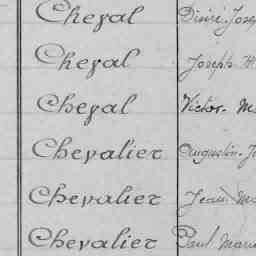 Cheval Désiré-Josep
Cheval Joseph-H
Cheval Victor-M
Chevalier Augustin-J
Chevalier Jean-Ma
Chevalier Paul Marie